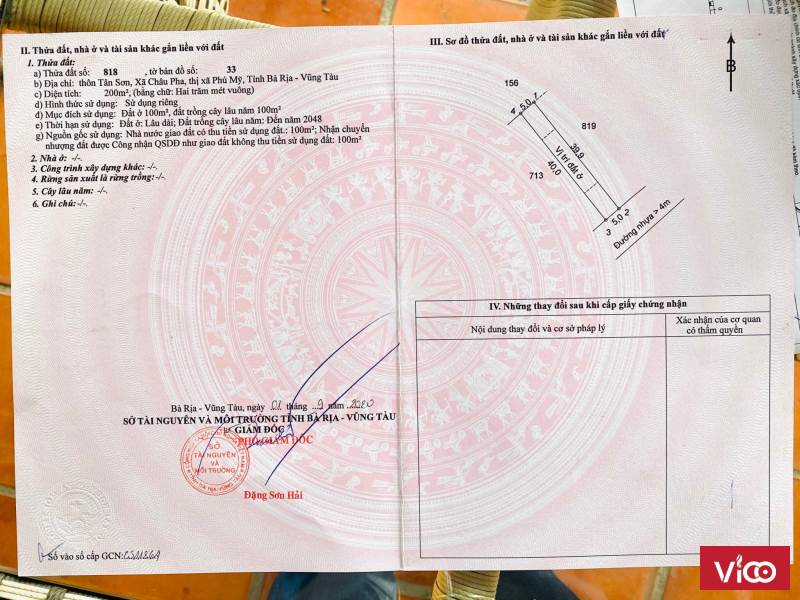 II. Thửa đất, nhà ở và tài sản khác gắn liền với đất
1. Thửa đất:
a) Thửa đất số: 818, tờ bản đồ số: 33
b) Địa chỉ: thôn Tân Sơn, Xã Châu Pha, thị xã Phú Mỹ, Tỉnh Bà Rịa - Vũng Tàu
c) Diện tích: 200m², (bằng chữ: Hai trăm mét vuông)
d) Hình thức sử dụng: Sử dụng riêng
đ) Mục đích sử dụng: Đất ở 100m², đất trồng cây lâu năm 100m²
e) Thời hạn sử dụng: Đất ở: Lâu dài; Đất trồng cây lâu năm: Đến năm 2048
g) Nguồn gốc sử dụng: Nhà nước giao đất có thu tiền sử dụng đất.: 100m²; Nhận chuyển
nhượng đất được Công nhận QSDĐ như giao đất không thu tiền sử dụng đất: 100m²
2. Nhà ở: -/-.
3. Công trình xây dựng khác: -/-.
4. Rừng sản xuất là rừng trồng: -/-.
5. Cây lâu năm: -/-.
6. Ghi chú: -/-.
Bà Rịa - Vũng Tàu, ngày 01 tháng 9 năm 2020
SỞ TÀI NGUYÊN VÀ MÔI TRƯỜNG TỈNH BÀ RỊA - VŨNG TÀU
GIÁM ĐỐC
PHÓ GIÁM ĐỐC
SỞ
TÀI NGUYÊN
VÀ
MÔI TRƯỜNG
Đặng Sơn Hải
Số vào sổ cấp GCN:
III. Sơ đồ thửa đất, nhà ở và tài sản khác gắn liền với đất
B
156
4 5,0 1
819
39,9
Vị trí đất ở
40,0
713
3 5,0 2
Đường nhựa > 4m
IV. Những thay đổi sau khi cấp giấy chứng nhận
Nội dung thay đổi và cơ sở pháp lý
Xác nhận của cơ quan
có thẩm quyền
VICO